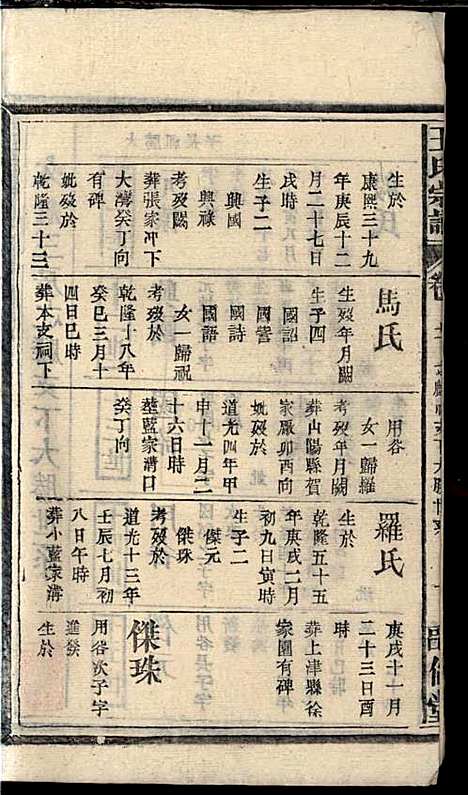 王氏宗譜
卷
生於
康熙三十九
年庚辰十二
月二十七日
戌時
生子二
興國
興祿
考歿闕
葬張家冲下
大灣癸丁向
有碑
妣歿於
乾隆三十三
馬氏
生歿年月闕
生子四
國詔
國誥
國詩
國語
女一歸祝
考歿於
乾隆十八年
癸巳三月十
四日巳時
葬本支祠下
用咨
女一歸羅
考歿年月闕
葬山陽縣賀
家厰卯酉向
妣歿於
道光四年甲
申十一月二
十六日時
塟藍家溝口
癸丁向
羅氏
生於
乾隆五十五
年庚戌二月
初九日寅時
生子二
傑元
傑珠
考歿於
道光十三年
壬辰七月初
八日午時
葬小藍家溝
庚戌十一月
二十三日酉
時
葬上津縣徐
家園有碑
傑珠
用咨次子字
進癸
生於